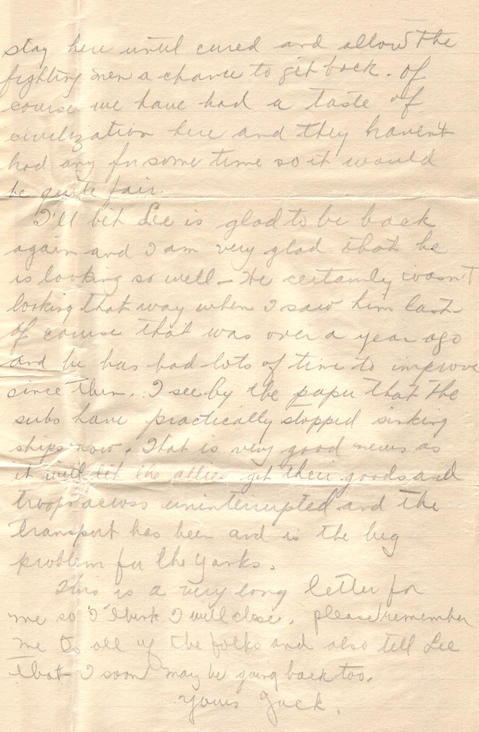 stay here until cured and allow the
fighting men a chance to get back. Of
course we have had a taste of
civilization here and they havent
had any for some time so it would
be quite fair.
I'll bet Lee is glad to be back
again and I am very glad that he
is looking so well - He certainly wasn't
looking that way when I saw him last
Of course that was over a year ago
and he has had lots of time to improve
since then. I see by the paper that the
subs have practically stopped sinking
ships now. That is very good news as
it will let the allies get their goods and
troops across uninterrupted and the
Transport has been and is the big
problem for the Yanks.
This is a very long letter for
me so I think I will close. please remember
me to all of the folks and also tell Lee
that I soon may be going back too.
Yours Jack.